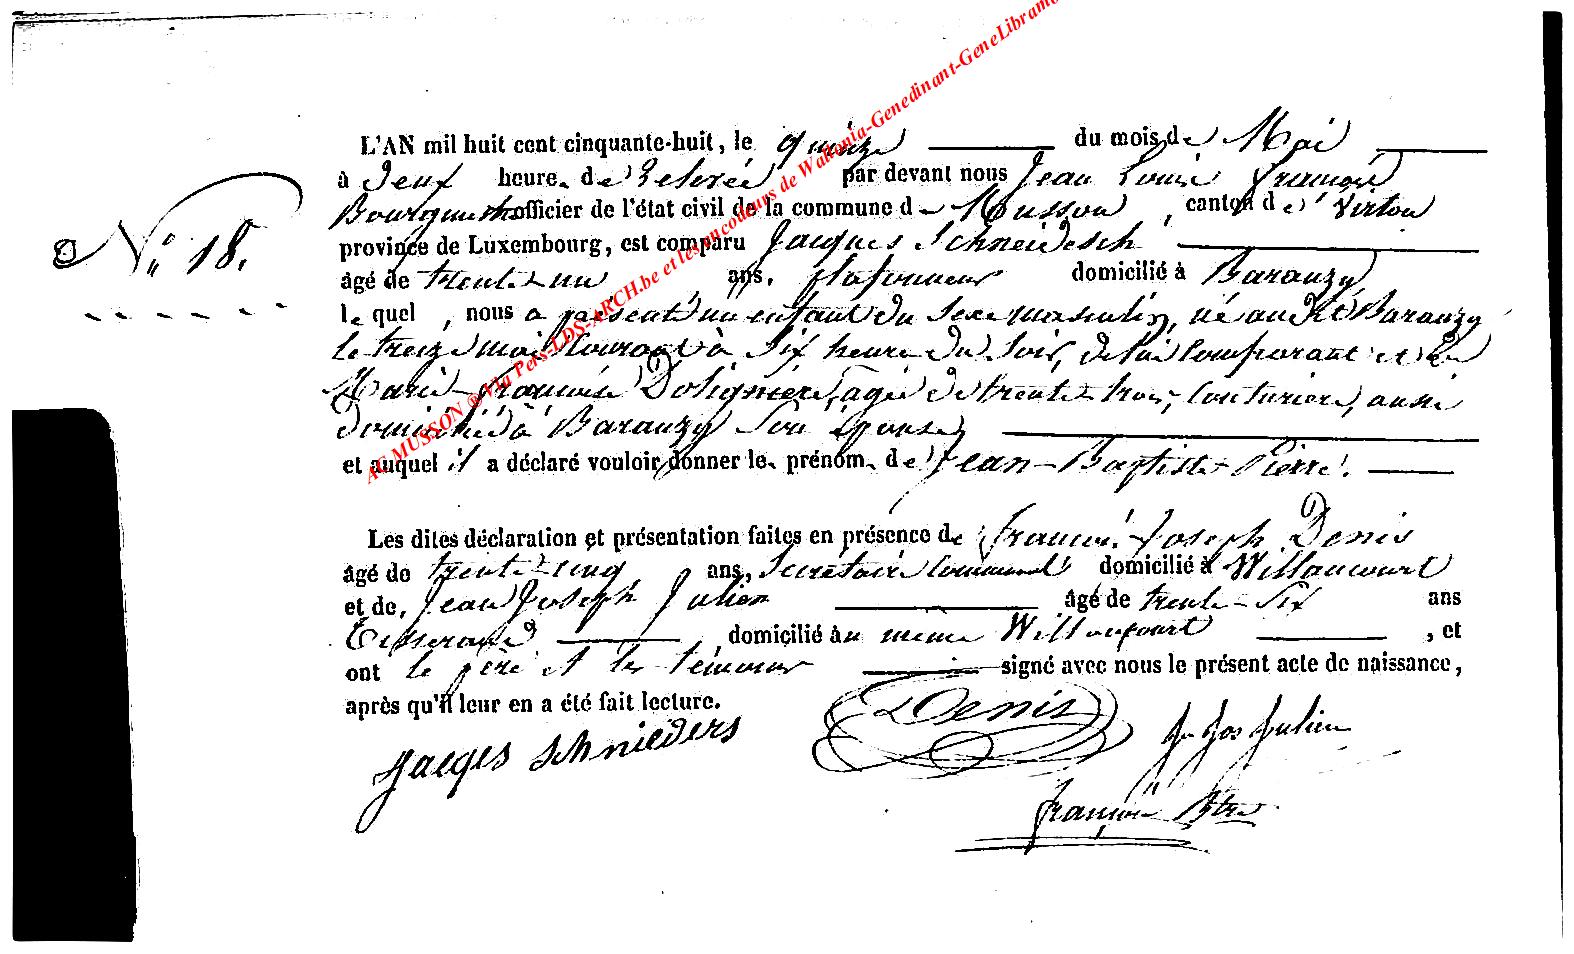 AC MUSSON ® Via Pers-LDS-ARCH.be et les encodeurs de Wallonia-Genedinant-GeneLibramo
L'AN mil huit cent cinquante-huit, le quinze du mois de Mai
à deux heure de relevée par devant nous Jean Louis François
officier de l'état civil de la commune de Musson, canton de Virton
N° 18.
province de Luxembourg, est comparu Jacques Schneidesch
âgé de trente-un ans. plafonneur domicilié à Baranzy
le quel, nous a présenté un enfant du sexe masculin, né audit Baranzy
le treize mai courant à six heure du soir, de lui comparant et de
Marie-Françoise Dolignière, agée de trente-trois, couturière, aussi
domiciliée à Baranzy son épouse,
et auquel il a déclaré vouloir donner le prénom de Jean-Baptiste-Pierre.
Les dites déclaration et présentation faites en présence de François-Joseph Denis
âgé de trente-cinq ans, secrétaire communal domicilié à Willancourt
et de, Jean Joseph Julien âgé de trente-six ans
Tisserand, domicilié àu même Willancourt, et
ont le père et les témoins signé avec nous le présent acte de naissance,
après qu'il leur en a été fait lecture.
Denis
Jacqes Schnieders
Jn Jos Julien
François